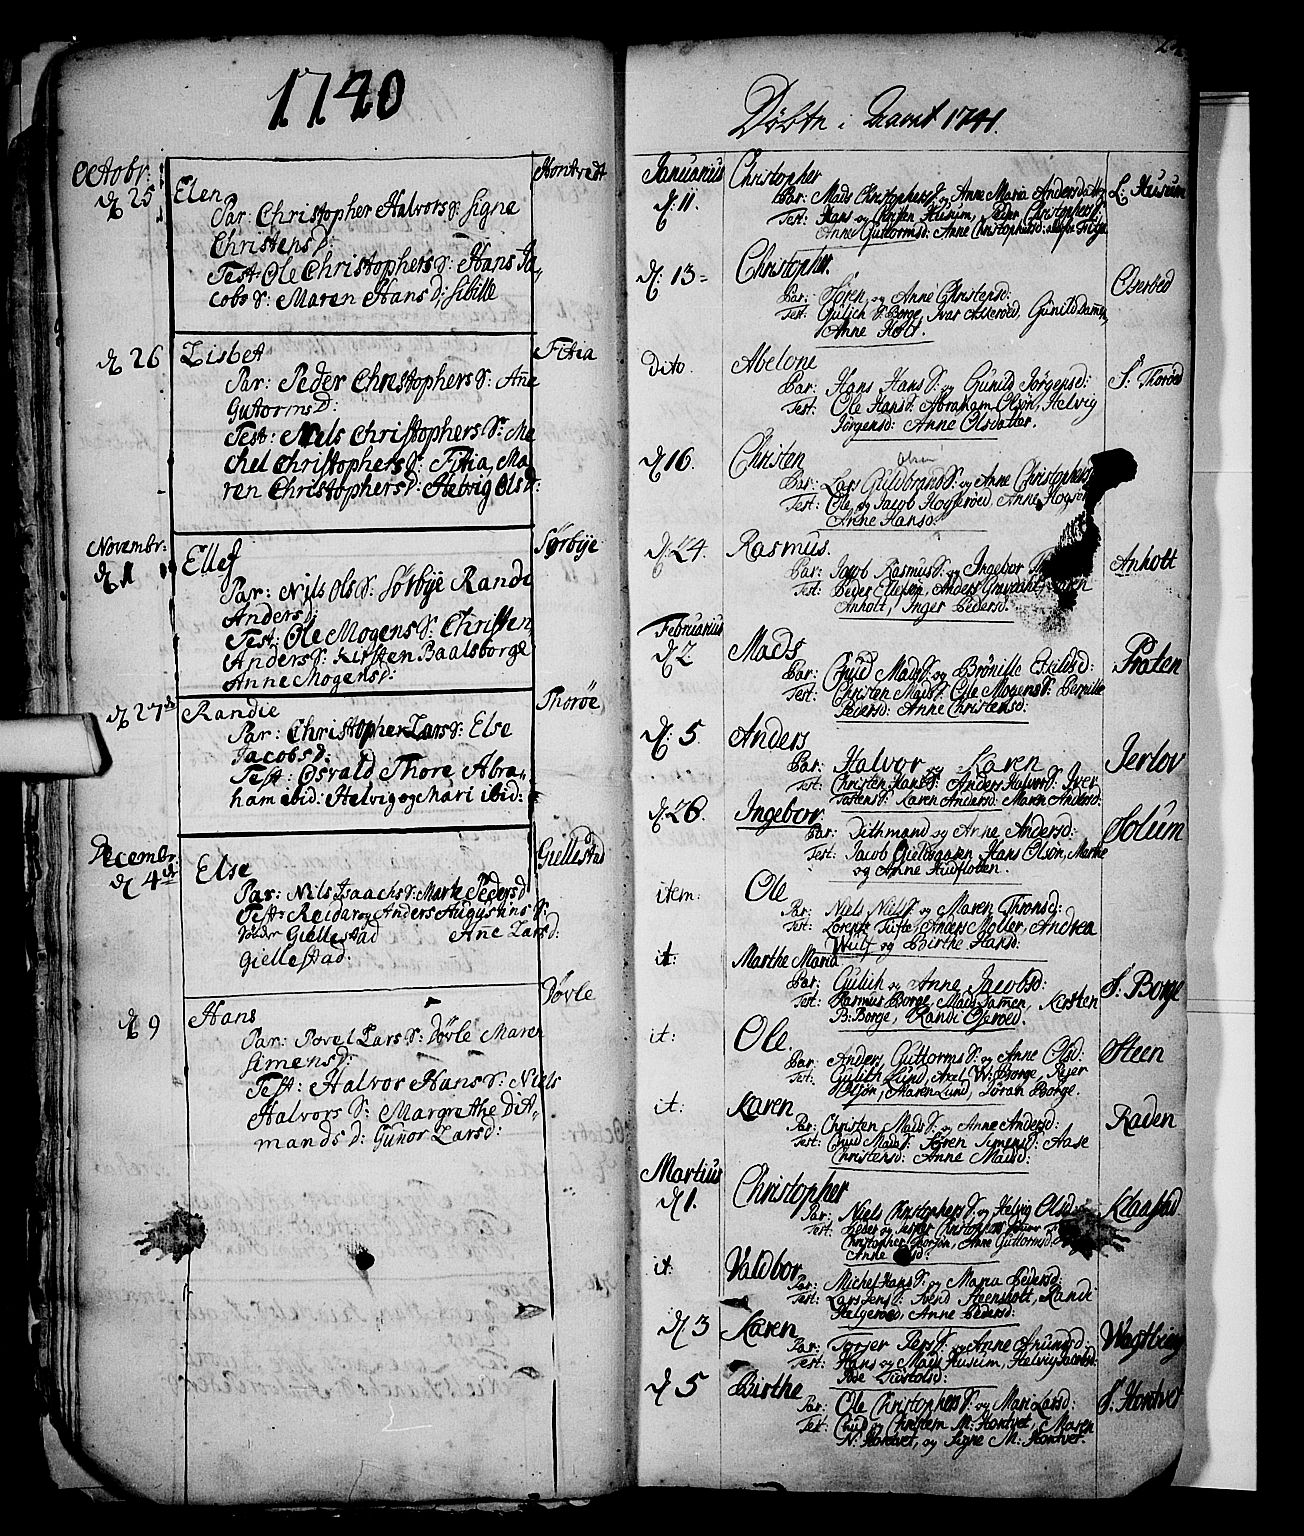 1740
Octobr:
d 25
Elen
Hontvedt
Par: Christopher Halvors S: Signe
Christens D:
Test: Ole Christophers S: Hans Ja-
cobs S: Maren Hans D: Sibille
d 26
Lisbet
Fitia
Par: Peder Christophers S: Anne
Gutorms D:
Test: Niels Christophers S: Mi
chel Christophers S: Fitia, Ma
ren Christophers D: Helvig Ols D:
Novembr:
d 1
Ellef
Sørbÿe
Par: Nils Ols S: Sørbÿe Randi
Anders D:
Test: Ole Mogens S: Christen
Anders S: Kirsten Baalsborge
Anne Mogens D:
d 27
Randie
Thorøe
Par: Christopher Lars S: Else
Jacobs D:
Test: Osvald Thore Abra-
ham ibid: Helvig og Mari ibid:
Decembr:
d 4
Else
Giellestad
Par: Nils Isaachs S: Marte Peders D
Test: Reidar og Anders Augustins S:
Peder Giellestad Anne Lars D:
Giellestad:
Døvle
d 9
Hans
Par: Povel Lars S: Døvle Maren
Simens D:
Test: Halvor Hans S: Niels
Halvors S: Margrethe Dit-
mands D: Gunor Lars D:
Døbte i Aaret 1741.
Januarius
d: 11.
Christopher
L: Husum
Par: Mads Christophers S: og Anne Maria Andersdatter
Test: Hans og Christen Husum, Peder Christophers S:
Anne Guttorms D: Anne Christophers D:
d: 13
Christopher.
Oserød
Par: Søren, og Anne Christens D:
Test: Gulich S. Borge, Ivar Asterød, Gunild Dammen,
Anne Holt.
dito.
Abelone
S: Thorød
Par: Hans Hans S: og Gunild Jørgens D:
Test: Ole Hans S: Abraham Olsøn, Helvig
Jørgens D: Anne Olsdatter.
d 16.
Christen
Par: Lars Guldbrands S: og Anne Christophers
Test: Ole, og Jacob Hogserød, Anne
Anne Hans D:
d: 24.
Rasmus.
Anholt
Par: Jacob Rasmus S: og Ingebor
Test: Peder Ellefsen, Anders Gravdahl,
Anholt, Inger Peders D.
Februarius
d 2.
Mads
Præten
Par: Gud Mads S: og Brønille Eskilds D:
Test: Christen Mads S: Ole Mogens S: Pernille
Peders D: Anne Christens D:
d: 5.
Anders
Jerlov
Par: Halvor og Karen
Test: Christen Hans S: Anders Halvors S: Iver
Tostens S: Karen Anders D: Maren Anders D:
d: 26.
Ingebor.
Solum
Par: Dithmand og Anne Anders D:
Test: Jacob Hans Olsøn, Marthe
og Anne Hudfloten.
item.
Ole
Par: Niels Niels S: og Maren Throns D:
Test: Lorents Anders Møller, Andrea
Wulf og Birthe Hans D:
it:
Marthe Maria
S: Borge
Par: Gulich og Anne Jacobs D:
Test: Rasmus Borge, Mads Damen, Kirsten
B: Borge, Randi Oserød.
it:
Ole.
Steen
Par: Anders Guttorms S: og Anne Ols D:
Test: Gulich Lund, Axel W: Borge, Peder
Olsøn, Karen Lund, Jøran Borge.
it:
Karen
Raden
Par: Christen Mads S: og Anne Anders D:
Test: Gud Mads S: Søren Simens S: Aase
Christens D: Anne Mads D:
Martius
d 1.
Christopher
Klaastad
Par: Niels Christophers S: og Helvig Ols D
Test: Peder og Jesper Christophers
Christopher Borsøn, Anne Guttorms D
Anne
it.
Valdbor
Par: Michel Hans S: og Maria Peders D:
Test: Lars Jens S: Svend Steensholt, Randi
Helgerød, Anne Peders D:
d 3
Karen
Par: Torger Pers S: og Anne Amunds D:
Test: Hans og Mads Husum, Helvig Jacobs D:
d 5
Birthe
S: Hontvet
Par: Ole Christophers S: og Mari Lars D:
Test: Gud og Christen M: Hontvet, Maren
N: Hontvet, og Signe M: Hontvet.